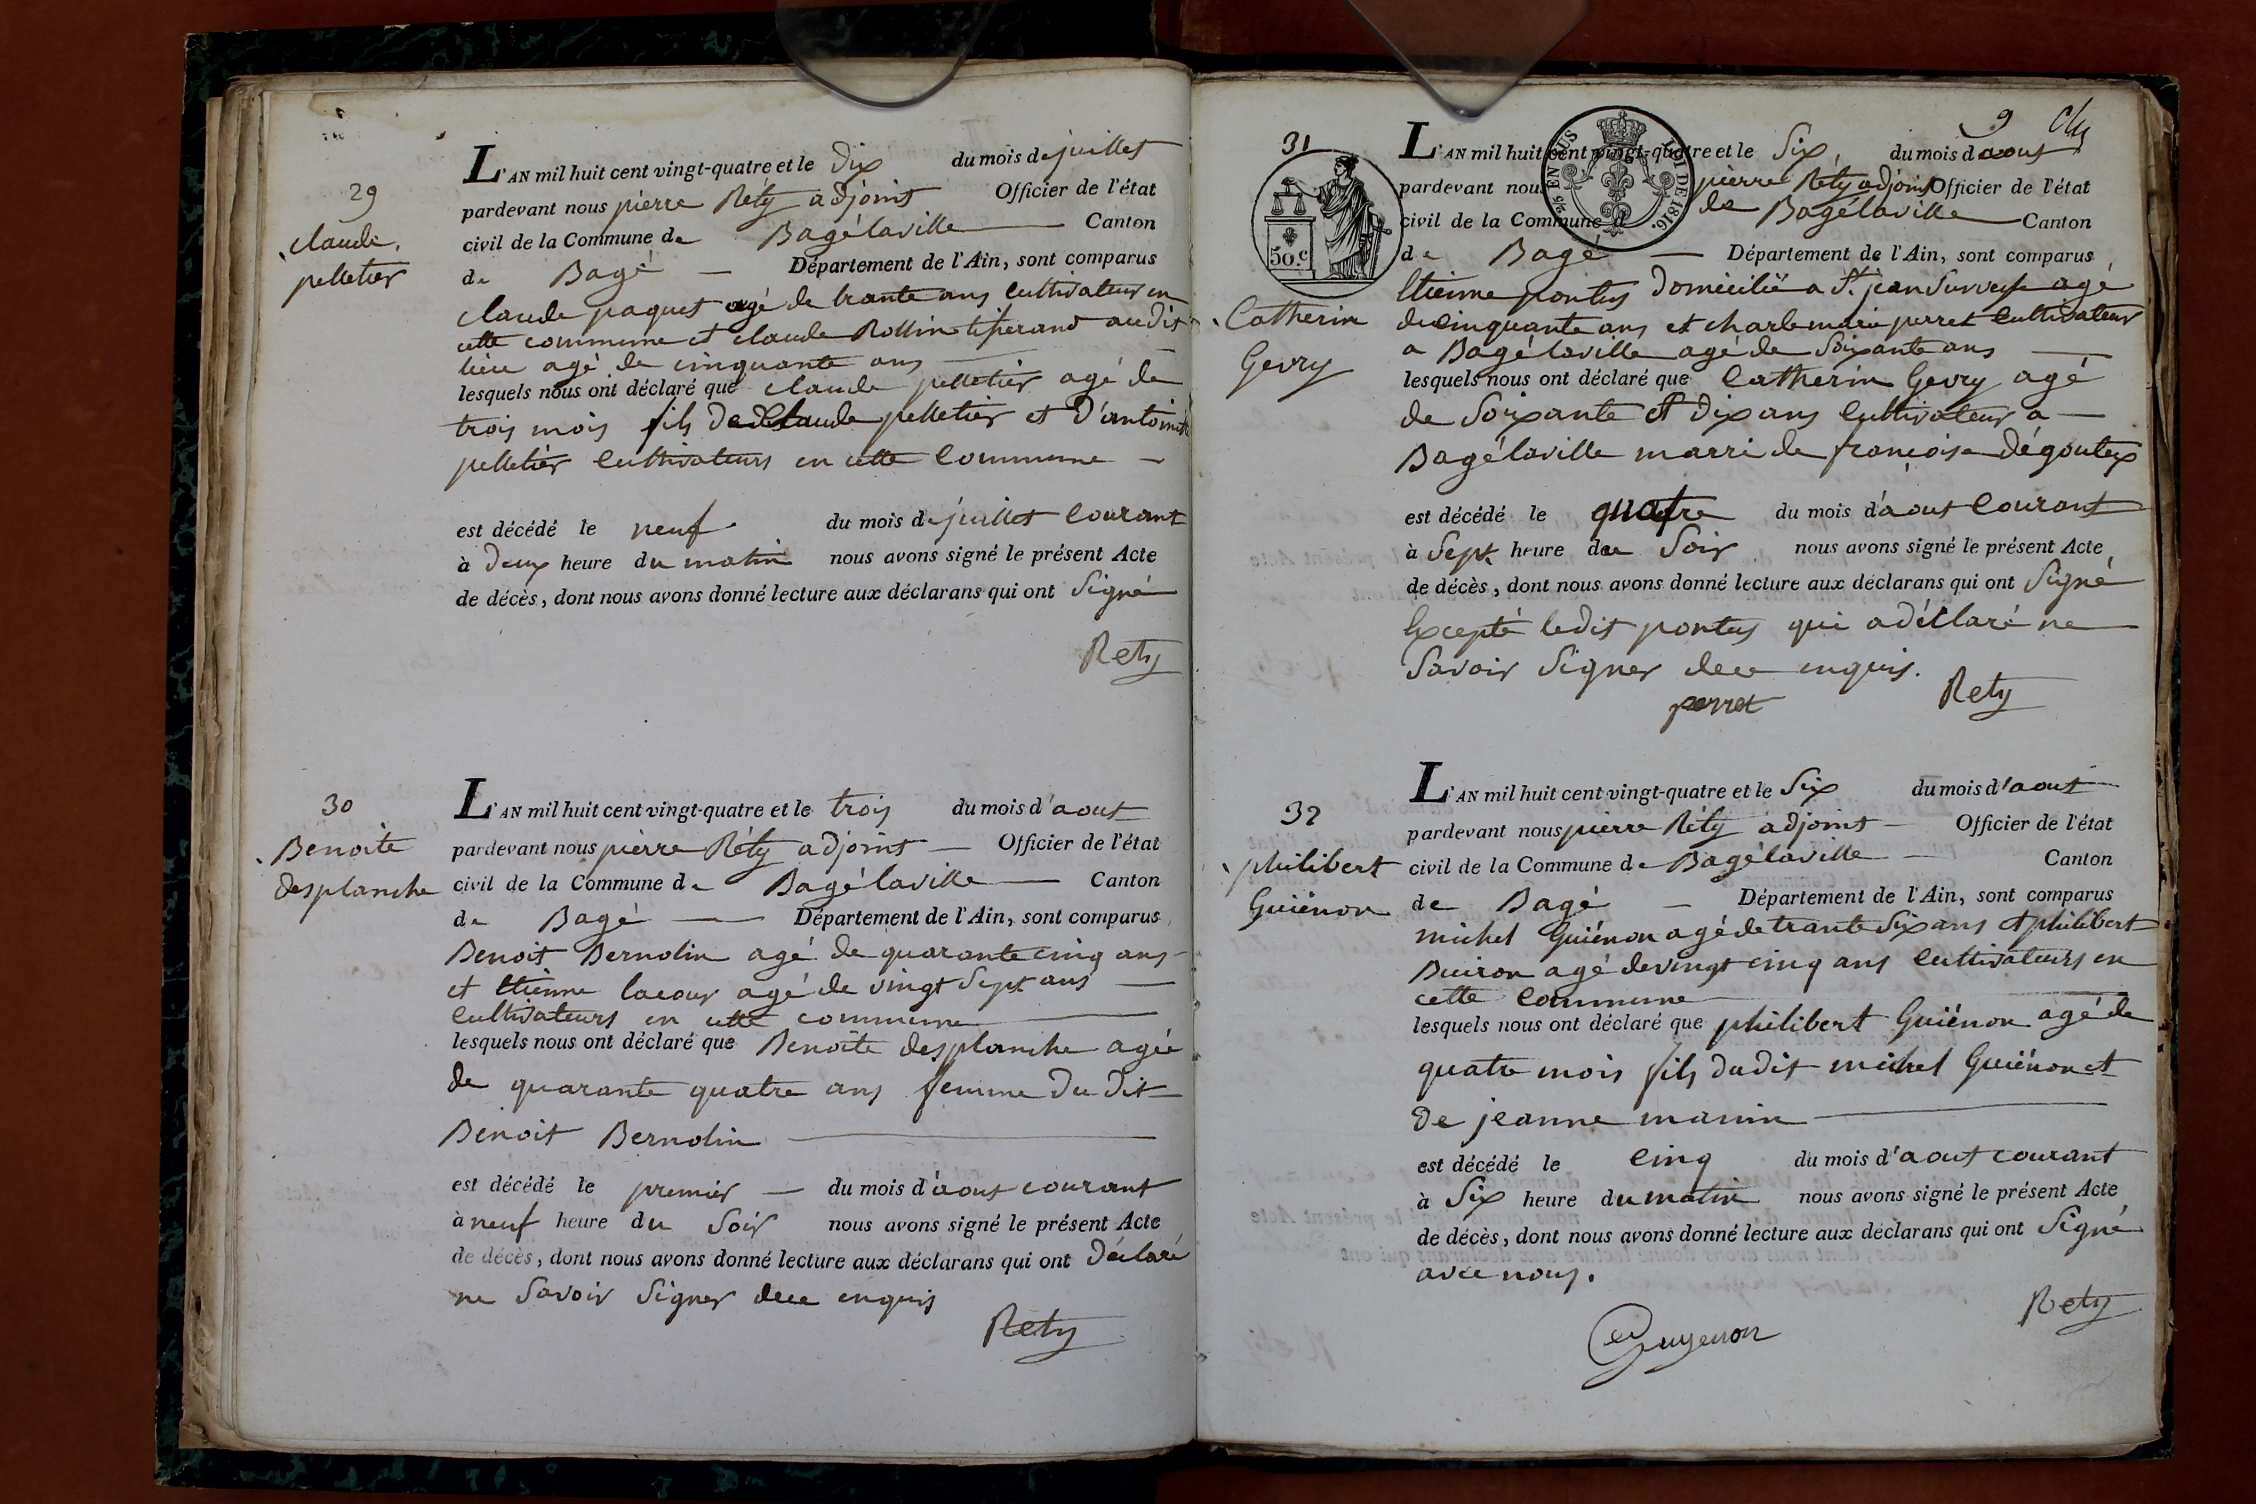 29
claude
pelletier
L'AN mil huit cent vingt-quatre et le dix du mois de juillet
pardevant nous pierre Réty adjoint Officier de l'état
civil de la Commune de Bagélaville Canton
de Bagé Département de l'Ain, sont comparus
claude paquet agé de trante ans cultivateur en
cette commune et claude Rollin tisserand audit
lieu agé de cinquante ans
lesquels nous ont déclaré que claude pelletier agé de
trois mois fils de Claude pelletier et d'antoinette
pelletier cultivateurs en cette commune
est décédé le neuf du mois de juillet courant
à deux heure du matin nous avons signé le présent Acte
de décès, dont nous avons donné lecture aux déclarans qui ont signé
Rety
30
Benoite
desplanche
L'AN mil huit cent vingt-quatre et le trois du mois d'aout
pardevant nous pierre Réty adjoint Officier de l'état
civil de la Commune de Bagélaville Canton
de Bagé Département de l'Ain, sont comparus
Benoit Bernolin agé de quarante cinq ans
et Etienne lacour agé de vingt sept ans
cultivateurs en cette commune
lesquels nous ont déclaré que Benoite desplanche agée
de quarante quatre ans femme du dit
Benoit Bernolin
est décédé le premier du mois d'aout courant
à neuf heure du soir nous avons signé le présent Acte
de décès, dont nous avons donné lecture aux déclarans qui ont déclaré
ne savoir signer de ce enquis
Rety
9
31
50 c
EN SUS
LOI DE 1816.
Catherin
Gevry
L'AN mil huit cent vingt-quatre et le six du mois d'aout
pardevant nous pierre Réty adjoint Officier de l'état
civil de la Commune de Bagélaville Canton
de Bagé Département de l'Ain, sont comparus
Etienne pontus domicilié a St. jean Surveyle agé
de cinquante ans et charle marie perret cultivateur
a Bagélaville agé de soixante ans
lesquels nous ont déclaré que Catherin Gevry agé
de soixante et dix ans cultivateur a
Bagélaville marri de françoise dégoutex
est décédé le quatre du mois d'aout courant
à sept heure du soir nous avons signé le présent Acte
de décès, dont nous avons donné lecture aux déclarans qui ont signé
Excepté ledit pontus qui a déclaré ne
savoir signer de ce enquis.
perret Rety
32
philibert
Guiénon
L'AN mil huit cent vingt-quatre et le six du mois d'aout
pardevant nous pierre Réty adjoint Officier de l'état
civil de la Commune de Bagélaville Canton
de Bagé Département de l'Ain, sont comparus
michel Guiénon agé de trante six ans et philibert
Buiron agé de vingt cinq ans cultivateurs en
cette commune
lesquels nous ont déclaré que philibert Guiénon agé de
quatre mois fils dudit michel Guiénon et
de jeanne manin
est décédé le cinq du mois d'aout courant
à six heure du matin nous avons signé le présent Acte
de décès, dont nous avons donné lecture aux déclarans qui ont signé
avec nous.
Rety
Guyenon